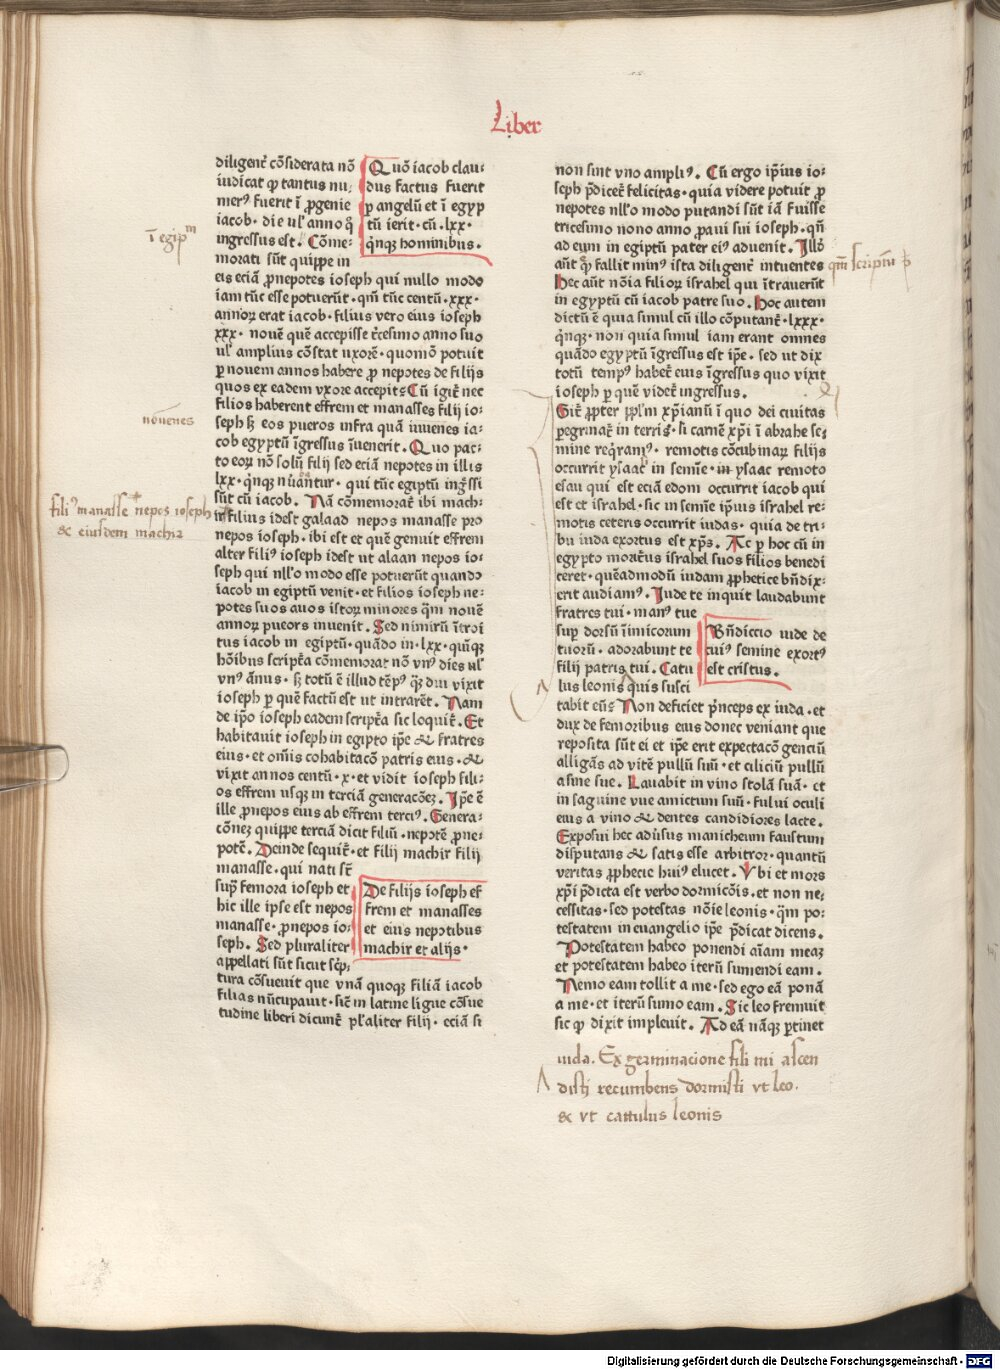 Liber
diligent̄ cōsiderata nō
iudicat ꝙ tantus nu⸗
merꝰ fuerit ī ꝓgenie
iacob · die ul̓ anno q̊
ingressus est . Cōme⸗
morati sūt quippe in
Quō iacob clau⸗
dus factus fuerit
ꝑ angelū et ī egyp
tū ierit · cū · lxx ·
qͥnqꝫ hominibus ·
eis eciā ꝓnepotes ioseph qui nullo modo
iam tūc esse potuerūt · qm̄ tūc centū · xxx ·
annoꝝ erat iacob · filius vero eius ioseph
xxx · nouē quē accepisse t̓cesimo anno suo
ul̓ amplius cōstat uxorē · quomō potuit
ꝑ nouem annos habere ꝓ nepotes de filijs
quos ex eadem vxore accepit Cū igit̄ nec
filios haberent effrem et manasses filij io⸗
seph sꝫ eos pueros infra quā iuuenes ia⸗
cob egyptū īgressus īuenerit . Quo pac⸗
to eoꝝ nō solū filij sed eciā nepotes in illis
lxx · qͥnqꝫ nūant̄ur · qui tūc egiptū ingͥssi
sūt cū iacob . Nā cōmemorat̄ ibi mach⸗
ir filius idest galaad nepos manasse pro
nepos ioseph · ibi est et quē genuit effrem
alter filiꝰ ioseph idest ut alaan nepos io⸗
seph qui nll̓o modo esse potuerūt quando
iacob in egiptū venit · et filios ioseph ne⸗
potes suos auos istoꝝ minores qͥm nouē
annoꝝ pueors inuenit . Sed nimirū īt̓roi
tus iacob in egiptū · quādo in · lxx · quīqꝫ
hōibus scripta cōmemorat̄ nō vnꝰ dies ul̓
vnꝰ ānus · sꝫ totū ē illud tēpꝰ qͣꝫ diu vixit
ioseph ꝑ quē factū est ut intrarēt . Nam
de ip̄o ioseph eadem script̄a sic loquit̄ . Et
habitauit ioseph in egipto ip̄e & fratres
eius · et om̄is cohabitacō patris eius · &
vixit annos centū · x · et vidit ioseph fili⸗
os effrem usqꝫ in terciā generacōeꝫ . Ip̄e ē
ille ꝓnepos eius ab effrem terciꝰ . Genera⸗
cōneꝫ quippe terciā dicit filiū · nepotē ꝓne⸗
potē . Deinde sequit̄ · et filij machir filij
manasse · qui nati st̄
supͣ femora ioseph et
hic ille ipse est nepos
manasse · ꝓnepos io⸗
seph . Sed pluraliter
appellati sūt sicut scͥp⸗
De filijs ioseph ef
frem et manasses
et eius nepotibus
machir et alijs ·
tura cōsueuit que vnā quoqꝫ filiā iacob
filias nūcupauit · sic̄ in latine ligue cōsue
tudine liberi dicunt̄ pl̓aliter filij · eciā si
non sint vno ampliꝰ . Cū ergo ip̄ius io⸗
seph p̄dicet̄ felicitas · quia videre potuit ꝓ
nepotes nll̓o modo putandi sūt iā fuisse
tricesimo nono anno ꝓaui sui ioseph · qn̄
ad eum in egiptū pater eiꝰ aduenit . Illᵈ
aūt qͦ fallit minꝰ ista diligent̄ intuentes
Hec aūt nōia filioꝝ israhel qui ītrauerūt
in egyptū cū iacob patre suo . Hoc autem
dictū ē quia simul cū illo cōputant̄ · lxxx ·
qͥnqꝫ · non quia simul iam erant omnes
quādo egyptū īgressus est ip̄e · sed ut dix
totū tempꝰ habet̄ eius īgressus quo vixit
ioseph ꝑ quē videt̄ ingressus .
Git̄ ꝓpter ppl̓m xp̄ianū ī quo dei ciuitas
ꝑegrinat̄ in terris · si carnē xp̄i ī abrahe se⸗
mine reqͥramꝰ · remotis cōcubinaꝝ filijs
occurrit ysaac in semīe · in ysaac remoto
esau qui est eciā edom occurrit iacob qui
est et israhel · sic in semīe ip̄ius israhel re⸗
motis ceteris occurrit iudas · quia de tri⸗
bu iuda exortus est xp̄s . Ac ꝑ hoc cū in
egypto mort̄us israhel suos filios benedi
ceret · quēadmodū iudam ꝓphetice bn̄dix⸗
erit audiamꝰ . Iude te inquit laudabunt
fratres tui · manꝰ tue
sup dorsū īimicorum
tuorū · adorabunt te
filij patris tui . Catu
lus leonis quis susci
Bn̄diccio iude de
cuiꝰ semine exortꝰ
est cristus .
tabit eūꝫ Non deficiet pͥnceps ex iuda · et
dux de femoribus eius donec veniant que
reposita sūt ei et ip̄e erit expectacō genciū
alligās ad vitē pullū suū · et ciliciū pullū
asine sue . Lauabit in vino stolā suā · et
in saguine vue amictum suū · fului oculi
eius a vino & dentes candidiores lacte .
Exposui hec adūsus manicheum faustum
disputans & satis esse arbitror · quantū
veritas ꝓphecie huiꝰ elucet . Vbi et mors
xp̄i p̄dicta est verbo dormicōis · et non ne⸗
cessitas · sed potestas nōie leonis · qͥm po⸗
testatem in euangelio ip̄e p̄dicat dicens .
Potestatem habeo ponendi aīam meaꝫ
et potestatem habeo iterū sumendi eam .
Nemo eam tollit a me · sed ego eā ponā
a me · et iterū sumo eam . Sic leo fremuit
sic ꝙ dixit impleuit . Ad eā nāqꝫ ꝑtinet
iuda . Ex germinacione fili mi ascen
disti recumbens dormisti vt leo .
& vt catulus leonis
ī egipᵐ
nōuenes
filiꝰ manasse nepos ioseph
& eiusdem machir